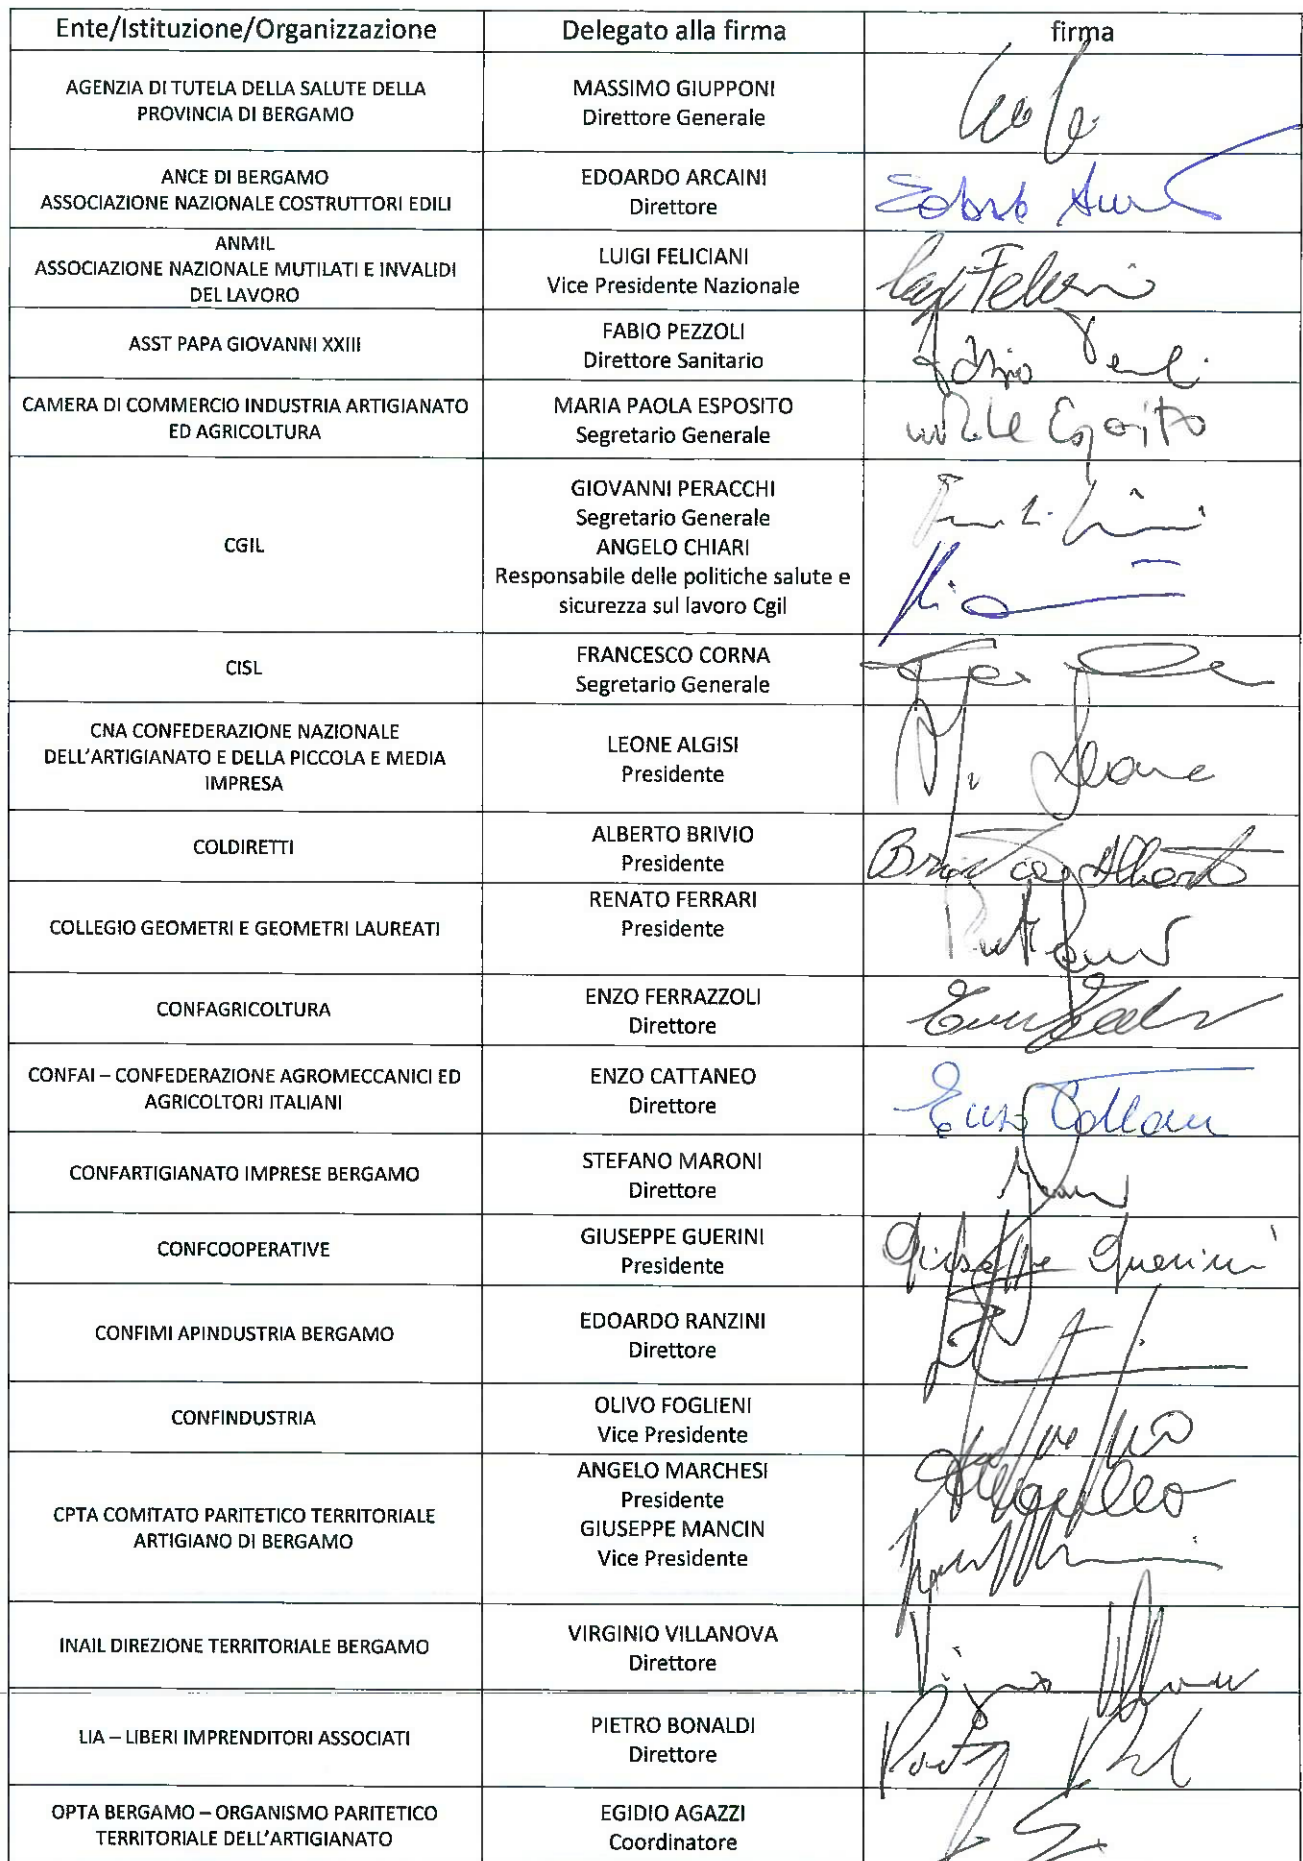 Ente/Istituzione/Organizzazione Delegato alla firma firma
AGENZIA DI TUTELA DELLA SALUTE DELLA
PROVINCIA DI BERGAMO
MASSIMO GIUPPONI
Direttore Generale
ANCE DI BERGAMO
ASSOCIAZIONE NAZIONALE COSTRUTTORI EDILI
EDOARDO ARCAINI
Direttore
ANMIL
ASSOCIAZIONE NAZIONALE MUTILATI E INVALIDI
DEL LAVORO
LUIGI FELICIANI
Vice Presidente Nazionale
ASST PAPA GIOVANNI XXIII
FABIO PEZZOLI
Direttore Sanitario
CAMERA DI COMMERCIO INDUSTRIA ARTIGIANATO
ED AGRICOLTURA
MARIA PAOLA ESPOSITO
Segretario Generale
Esposito
CGIL
GIOVANNI PERACCHI
Segretario Generale
ANGELO CHIARI
Responsabile delle politiche salute e
sicurezza sul lavoro Cgil
CISL
FRANCESCO CORNA
Segretario Generale
CNA CONFEDERAZIONE NAZIONALE
DELL'ARTIGIANATO E DELLA PICCOLA E MEDIA
IMPRESA
LEONE ALGISI
Presidente
COLDIRETTI
ALBERTO BRIVIO
Presidente
Alberto
COLLEGIO GEOMETRI E GEOMETRI LAUREATI
RENATO FERRARI
Presidente
CONFAGRICOLTURA
ENZO FERRAZZOLI
Direttore
CONFAI – CONFEDERAZIONE AGROMECCANICI ED
AGRICOLTORI ITALIANI
ENZO CATTANEO
Direttore
CONFARTIGIANATO IMPRESE BERGAMO
STEFANO MARONI
Direttore
CONFCOOPERATIVE
GIUSEPPE GUERINI
Presidente
Giuseppe Guerini
CONFIMI APINDUSTRIA BERGAMO
EDOARDO RANZINI
Direttore
CONFINDUSTRIA
OLIVO FOGLIENI
Vice Presidente
CPTA COMITATO PARITETICO TERRITORIALE
ARTIGIANO DI BERGAMO
ANGELO MARCHESI
Presidente
GIUSEPPE MANCIN
Vice Presidente
INAIL DIREZIONE TERRITORIALE BERGAMO
VIRGINIO VILLANOVA
Direttore
LIA – LIBERI IMPRENDITORI ASSOCIATI
PIETRO BONALDI
Direttore
OPTA BERGAMO – ORGANISMO PARITETICO
TERRITORIALE DELL'ARTIGIANATO
EGIDIO AGAZZI
Coordinatore